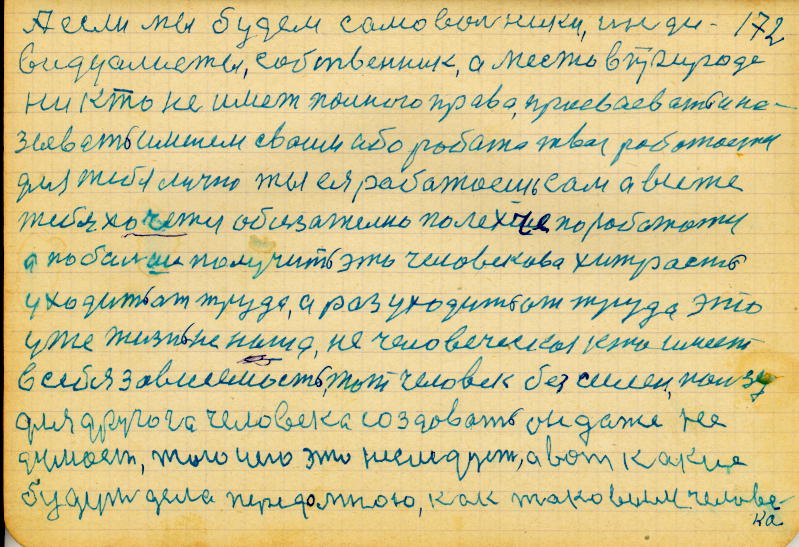 А если мы будем самовольники, инди- 172
видуалисты, собственник, а место в природе
никто не имет полного права, присваевать и на-
зывать именем своим ибо робата твая работаеш
для тебя лично ты ея рабатаешь сам а высже
тебя хочеты обизателно полехче поработати
а побольши получить это человекова хитрасть
уходить от труда, а раз уходить от труда это
уже жизнь не наша, не человеческая кто имеет
в себя зависемость, тот человек без силен, ползу
для другога человека создовать он даже не
думает, того чего это неследует, а вот какие
будут дела передомною, как таковым челове-
ка